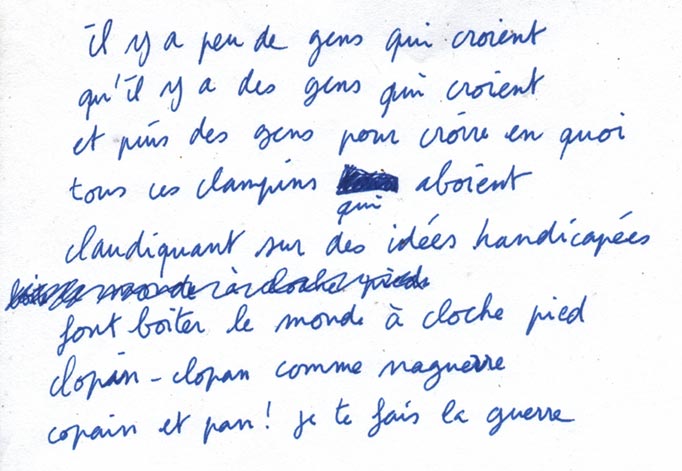 il y a peu de gens qui croient
qu'il y a des gens qui croient
et puis des gens pour croire en quoi
tous ces clampins qui aboient
claudiquant sur des idées handicapées
font boiter le monde à cloche pied
clopin-clopan comme naguerre
copain et pan! je te fais la guerre